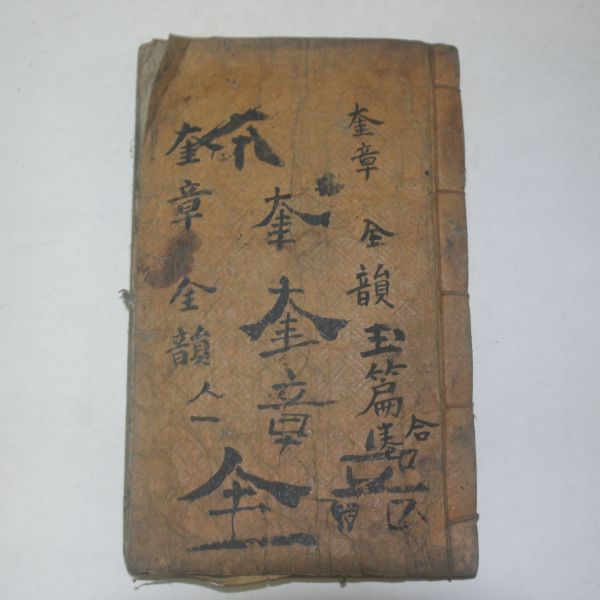 奎章 全韻 玉篇
合
奎
奎章
全
奎章全韻